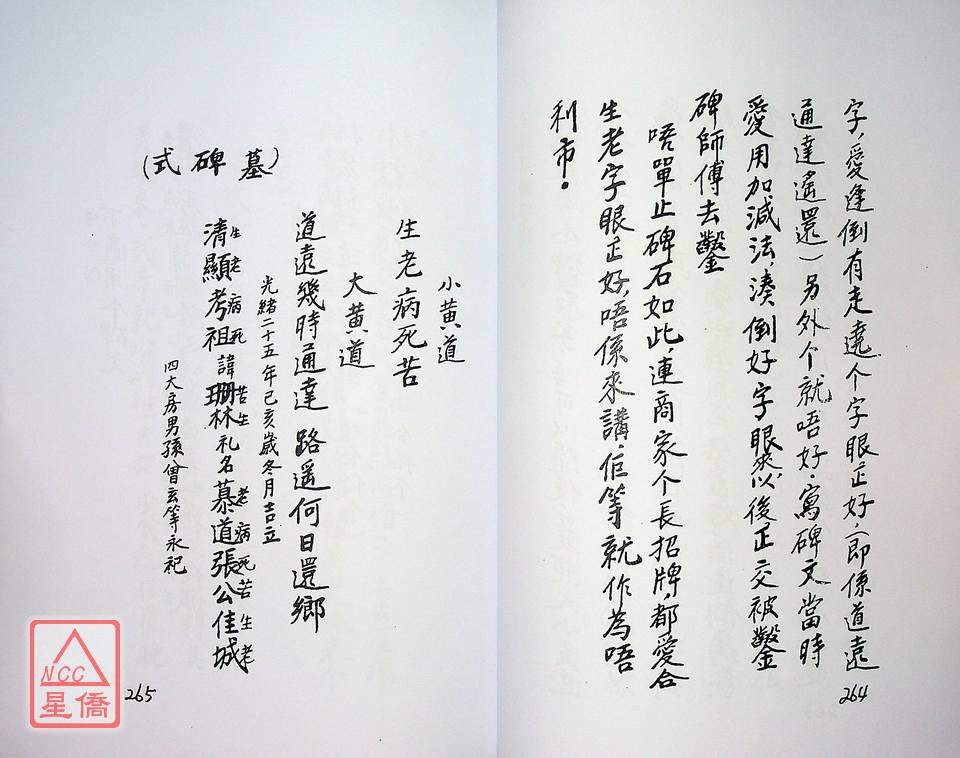 字,愛逢倒有走達个字眼正好,(即係道遠
通達遙還)另外个就唔好。寫碑文當時
愛用加減法,湊倒好字眼,然以後正交被鑿
碑師傅去鑿
唔單止碑石如此,連商家个長招牌,都愛合
生老字眼正好,唔係來講,佢等就作為唔
利市。
264
(墓碑式)
小黃道
生老病死苦
大黃道
道遠幾時通達 路遥何日還鄉
光緒二十五年己亥歲冬月吉立
生老病死苦生老病死苦生老
清顯考祖諱珊林礼名慕道張公佳城
四大房男孫曾玄等永祀
265
NCC
星僑